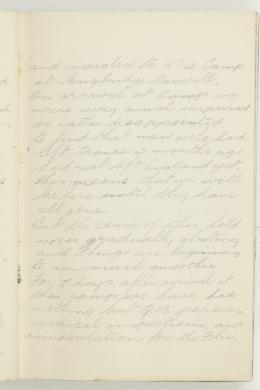 and marched to No 12 Camp
at Longbridge Deverell.
On arrival at Camp we
were very much surprised
or rather disappointed
to find that men who had
left France 2 months ago
had not left England yet
this means that we will
be here until they have
all gone
But the cause of this, hold
up is gradually abating
and things are beginning
to run smoother
For 5 days after arrival at
this camp we have had
nothing but parades
medical inspections, and
innoculation for the Flu.